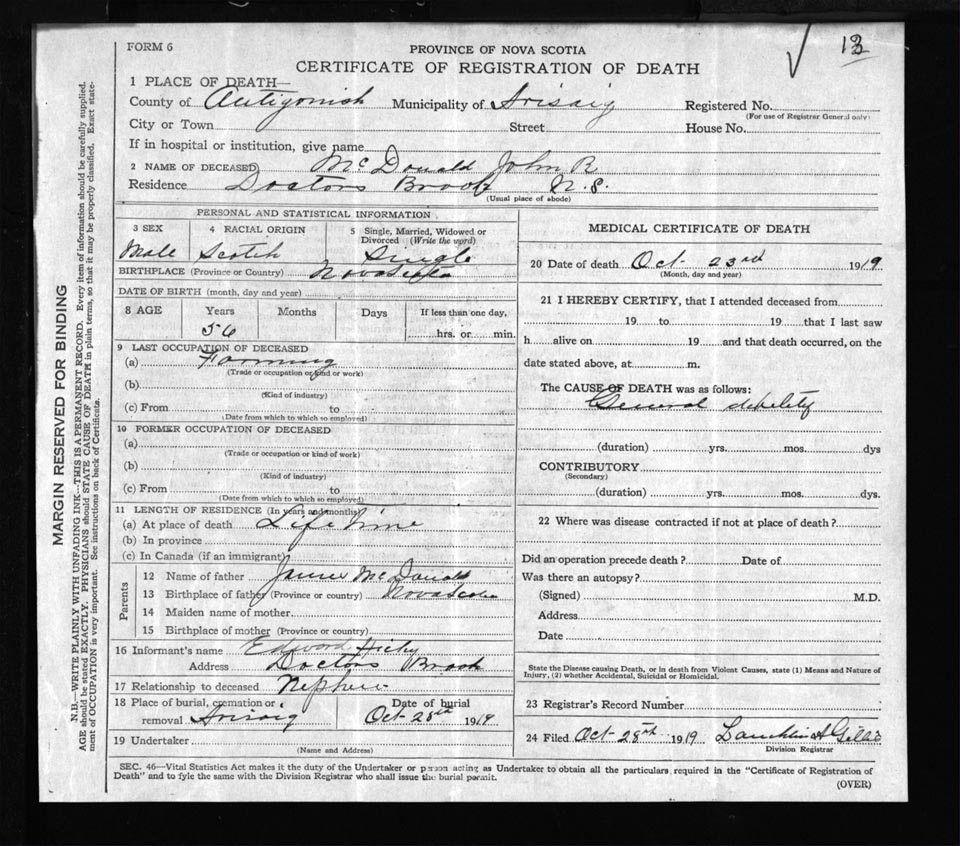 13
FORM 6
PROVINCE OF NOVA SCOTIA
CERTIFICATE OF REGISTRATION OF DEATH
1 PLACE OF DEATH—
County of Antigonish Municipality of Arisaig Registered No.
(For use of Registrar General only)
City or Town Street House No.
If in hospital or institution, give name
2 NAME OF DECEASED McDonald John R
Residence Doctors Brook N.S.
(Usual place of abode)
PERSONAL AND STATISTICAL INFORMATION
3 SEX 4 RACIAL ORIGIN 5 Single, Married, Widowed or
Divorced (Write the word)
Male Scotch Single
BIRTHPLACE (Province or Country) Nova Scotia
DATE OF BIRTH (month, day and year)
8 AGE Years Months Days If less than one day,
56 hrs. or min.
9 LAST OCCUPATION OF DECEASED
(a) Farming
(Trade or occupation or kind or work)
(b)
(Kind of industry)
(c) From to
(Date from which to which so employed)
10 FORMER OCCUPATION OF DECEASED
(a)
(Trade or occupation or kind of work)
(b)
(Kind of industry)
(c) From to
(Date from which to which so employed)
11 LENGTH OF RESIDENCE (In years and months)
(a) At place of death Life time
(b) In province
(c) In Canada (if an immigrant)
Parents
12 Name of father James McDonald
13 Birthplace of father (Province or country) Nova Scotia
14 Maiden name of mother
15 Birthplace of mother (Province or country)
16 Informant's name Edward Hieby
Address Doctors Brook
17 Relationship to deceased Nephew
18 Place of burial, cremation or Date of burial
removal Arisaig Oct 28th 1919
19 Undertaker
(Name and Address)
MEDICAL CERTIFICATE OF DEATH
20 Date of death Oct 23rd 1919
(Month, day and year)
21 I HEREBY CERTIFY, that I attended deceased from
19 to 19 that I last saw
h alive on 19 and that death occurred, on the
date stated above, at m.
The CAUSE OF DEATH was as follows:
General debility
(duration) yrs. mos. dys
CONTRIBUTORY
(Secondary)
(duration) yrs. mos. dys.
22 Where was disease contracted if not at place of death?
Did an operation precede death? Date of
Was there an autopsy?
(Signed) M.D.
Address
Date
State the Disease causing Death, or in death from Violent Causes, state (1) Means and Nature of
Injury, (2) whether Accidental, Suicidal or Homicidal.
23 Registrar's Record Number
24 Filed Oct 28th 1919 Lauchlin A Gillis
Division Registrar
SEC. 46—Vital Statistics Act makes it the duty of the Undertaker or person acting as Undertaker to obtain all the particulars required in the "Certificate of Registration of
Death" and to fyle the same with the Division Registrar who shall issue the burial permit.
(OVER)
MARGIN RESERVED FOR BINDING
N.B.—WRITE PLAINLY WITH UNFADING INK—THIS IS A PERMANENT RECORD. Every item of information should be carefully supplied.
AGE should be stated EXACTLY. PHYSICIANS should STATE CAUSE OF DEATH in plain terms, so that it may be properly classified. Exact state-
ment of OCCUPATION is very important. See instructions on back of Certificate.